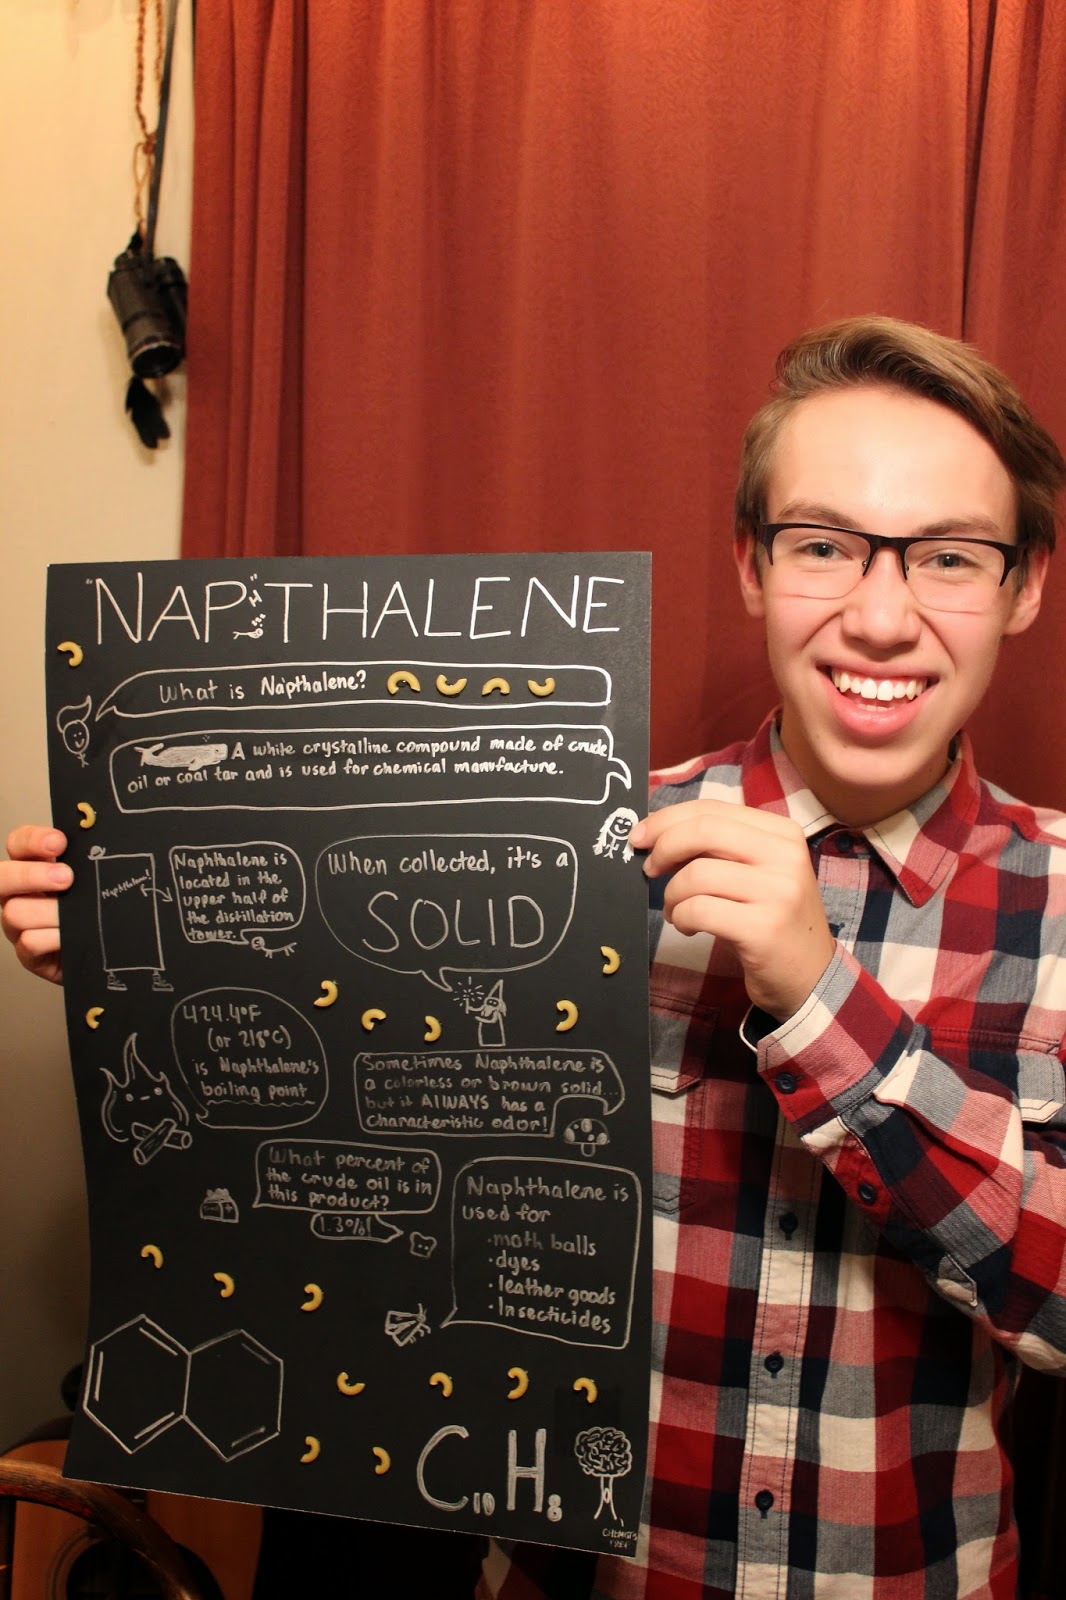 "NAP"H"THALENE
What is Napthalene?
A white crystalline compound made of crude
oil or coal tar and is used for chemical manufacture.
Naphthalene!
Naphthalene is
located in the
upper half of
the distillation
tower.
When collected, it's a
SOLID
424.4°F
(or 218°C)
is Naphthalene's
boiling point
Sometimes Naphthalene is
a colorless or brown solid...
but it AlWAYS has a
characteristic odor!
What percent of
the crude oil is in
this product?
1.3%!
Naphthalene is
used for
• moth balls
• dyes
• leather goods
• Insecticides
C10H8
CHEMIST'S
TREE